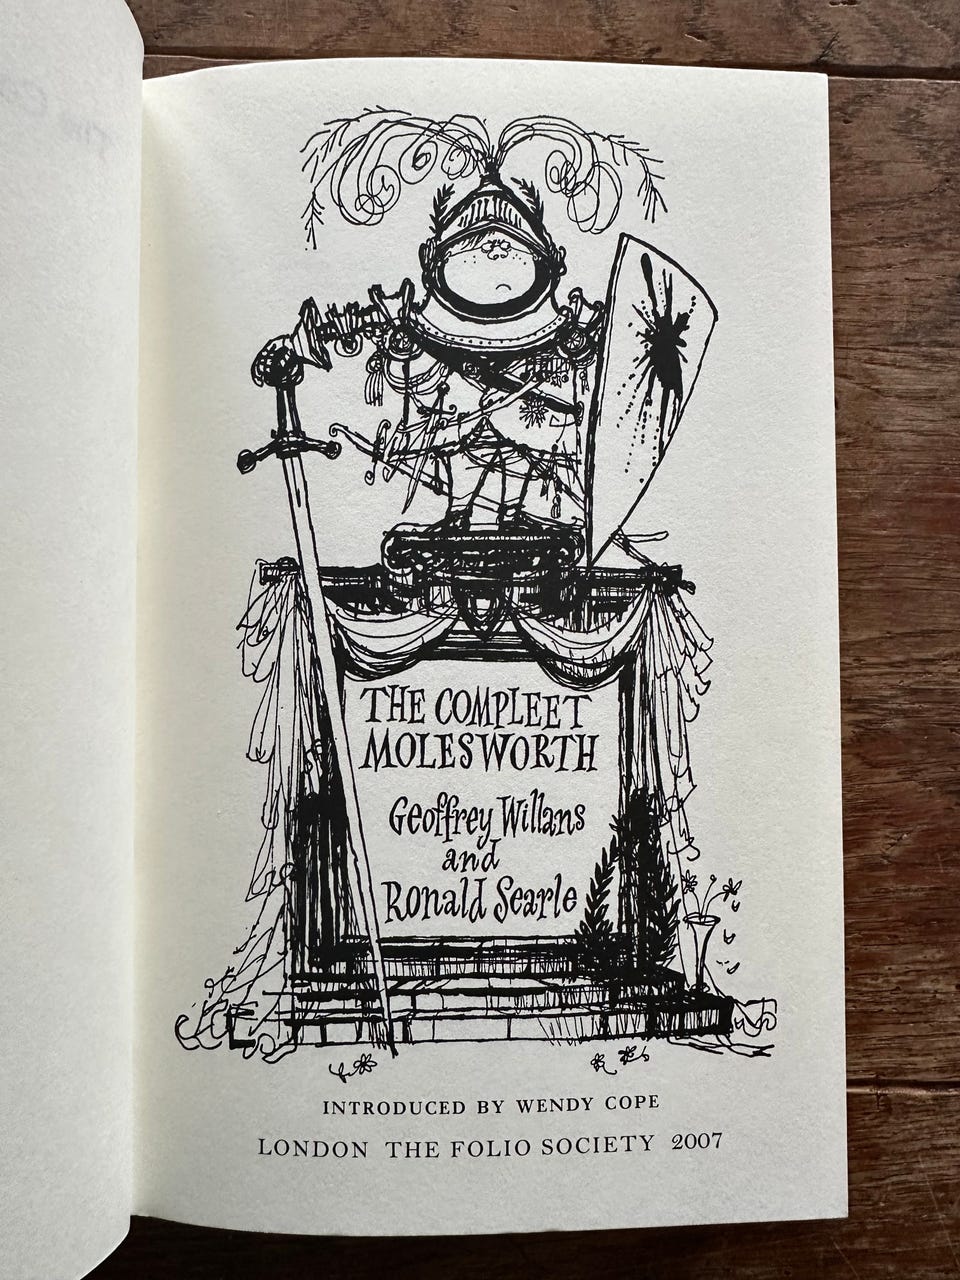 THE COMPLEET
MOLESWORTH
Geoffrey Willans
and
Ronald Searle
INTRODUCED BY WENDY COPE
LONDON THE FOLIO SOCIETY 2007